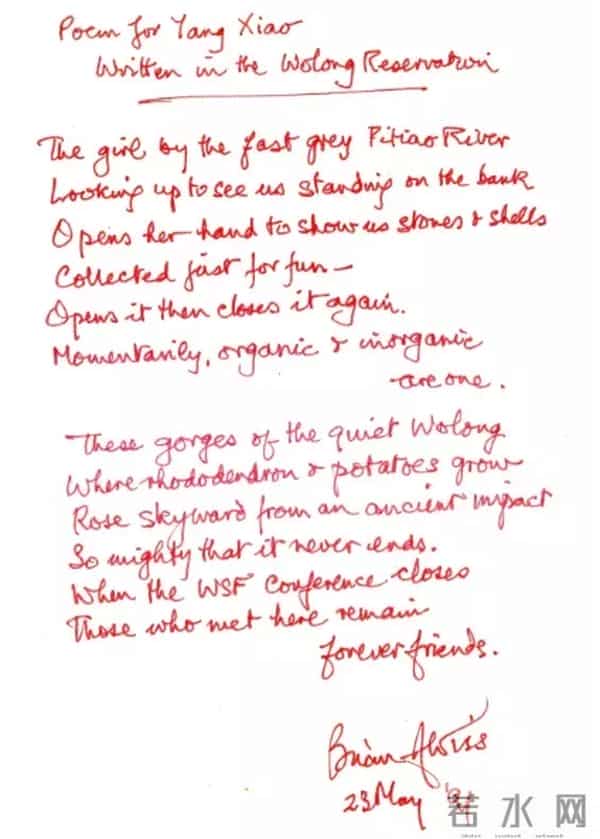 Poem for Yang Xiao
Written in the Wolong Reservation
The girl by the fast grey Pitiao River
Looking up to see us standing on the bank
Opens her hand to show us stones & shells
Collected just for fun —
Opens it then closes it again.
Momentarily, organic & inorganic
are one.
These gorges of the quiet Wolong
Where rhododendron & potatoes grow
Rose skyward from an ancient impact
So mighty that it never ends.
When the WSF Conference closes
Those who met here remain
forever friends.
Brian Aldiss
23 May '91
若水网